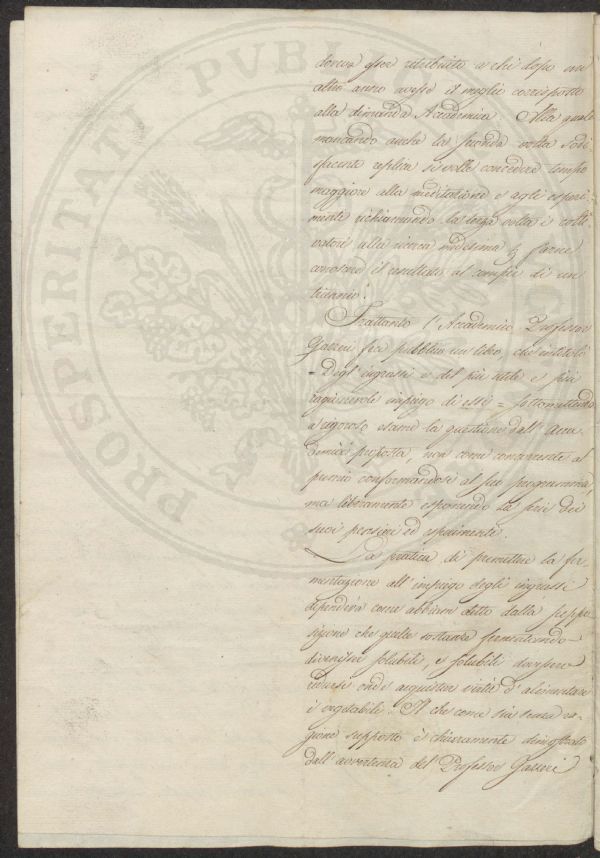 PROSPERITATI PVBLICAE
doveva esser retribuito a chi dopo un
altro anno avesse il meglio corrisposto
alla dimanda Accademica. Alla quale
mancando anche la seconda volta sodi-
sfacente replica si volle concedere tempo
maggiore alla meditazione e agli esperi-
menti richiamando la terza volta i colti-
vatori alla ricerca medesima p farne
conoscere il resultato al compir di un
triennio.
Frattanto l'Accademico Professor
Gazzeri fece pubblico un libro, che intitolò
= Degl'ingrassi e del più utile e più
ragionevole impiego di essi = sottomettendo
a rigoroso esame la questione dall'Acca-
demia proposta, non come concorrente al
premio conformandosi al suo programma,
ma liberamente esponendo la serie dei
suoi pensieri ed esperimenti.
La pratica di premettere la fer-
mentazione all'impiego degli ingrassi
dipendeva come abbiam detto dalla suppo-
sizione che quelle sostanze fermentando
divenisser solubili, e solubili dovessero
rendersi onde acquistar virtù d'alimentare
i vegetabili. Il che come sia senza ra-
gione supposto è chiaramente dimostrato
dall'avvertenza del Professor Gazzeri